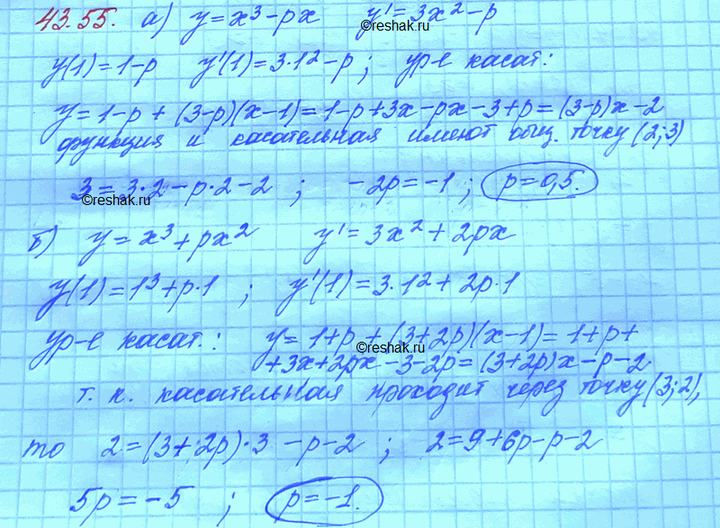 43.55. а) y=x³-px   y'=3x²-p
©reshak.ru
y(1)=1-p   y'(1)=3·1²-p ; ур-е касат:
y=1-p+(3-p)(x-1)=1-p+3x-px-3+p=(3-p)x-2
функция и касательная имеют общ. точку (2;3)
3=3·2-p·2-2 ; -2p=-1 ; p=0,5.
©reshak.ru
б) y=x³+px²   y'=3x²+2px
y(1)=1³+p·1 ; y'(1)=3·1²+2p·1
ур-е касат.: y=1+p+(3+2p)(x-1)=1+p+
©reshak.ru
+3x+2px-3-2p=(3+2p)x-p-2.
т. к. касательная проходит через точку (3;2),
то 2=(3+2p)·3-p-2 ; 2=9+6p-p-2
5p=-5 ; p=-1.